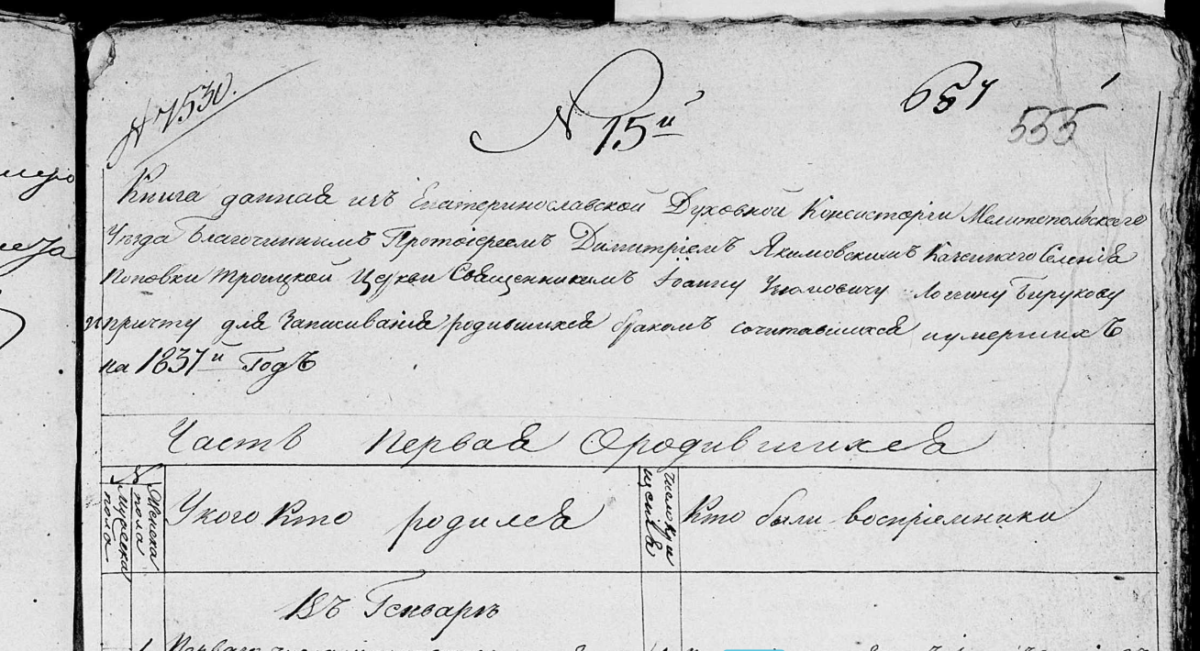 № 7530.
№ 15й
657
555
Книга данная изъ Екатеринославской Духовной Консисторіи Мелитопольскаго
Уѣзда Благочиннымъ Протоіереемъ Димитріемъ Якимовскимъ Казеннаго Селенія
Поповки Троицкой Церкви Священникамъ Іоанну Бирукову
и причту для Записиванія родившихся бракомъ сочитавшихся и умершихъ
на 1837й Годъ
Часть Первая О родившихся
№
Мужеска пола
Женска пола
У кого Кто родился
Кто были воспріемники
Въ Генварѣ